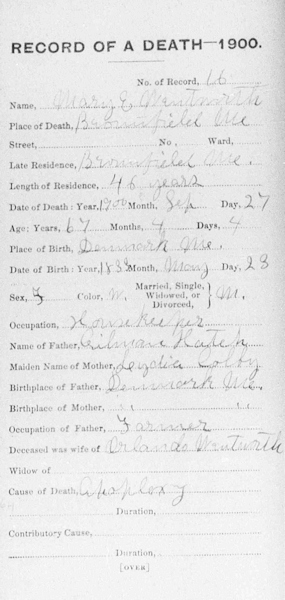 RECORD OF A DEATH—1900.
No. of Record, 16
Name, Mary E. Wentworth
Place of Death, Brownfield Me
Street, No. Ward,
Late Residence, Brownfield Me.
Length of Residence, 46 years
Date of Death: Year, 1900 Month, Sep Day, 27
Age: Years, 67 Months, 4 Days, 4
Place of Birth, Denmark Me.
Date of Birth: Year, 1833 Month, May Day, 23
Sex, F Color, W. Married, Single, Widowed, or Divorced, } M.
Occupation, Housekeeper
Name of Father, Hatch
Maiden Name of Mother, Lydia Colby
Birthplace of Father, Denmark Me.
Birthplace of Mother, " "
Occupation of Father, Farmer
Deceased was wife of Orlando Wentworth
Widow of
Cause of Death, Apoplexy
Duration,
Contributory Cause,
Duration,
[OVER]